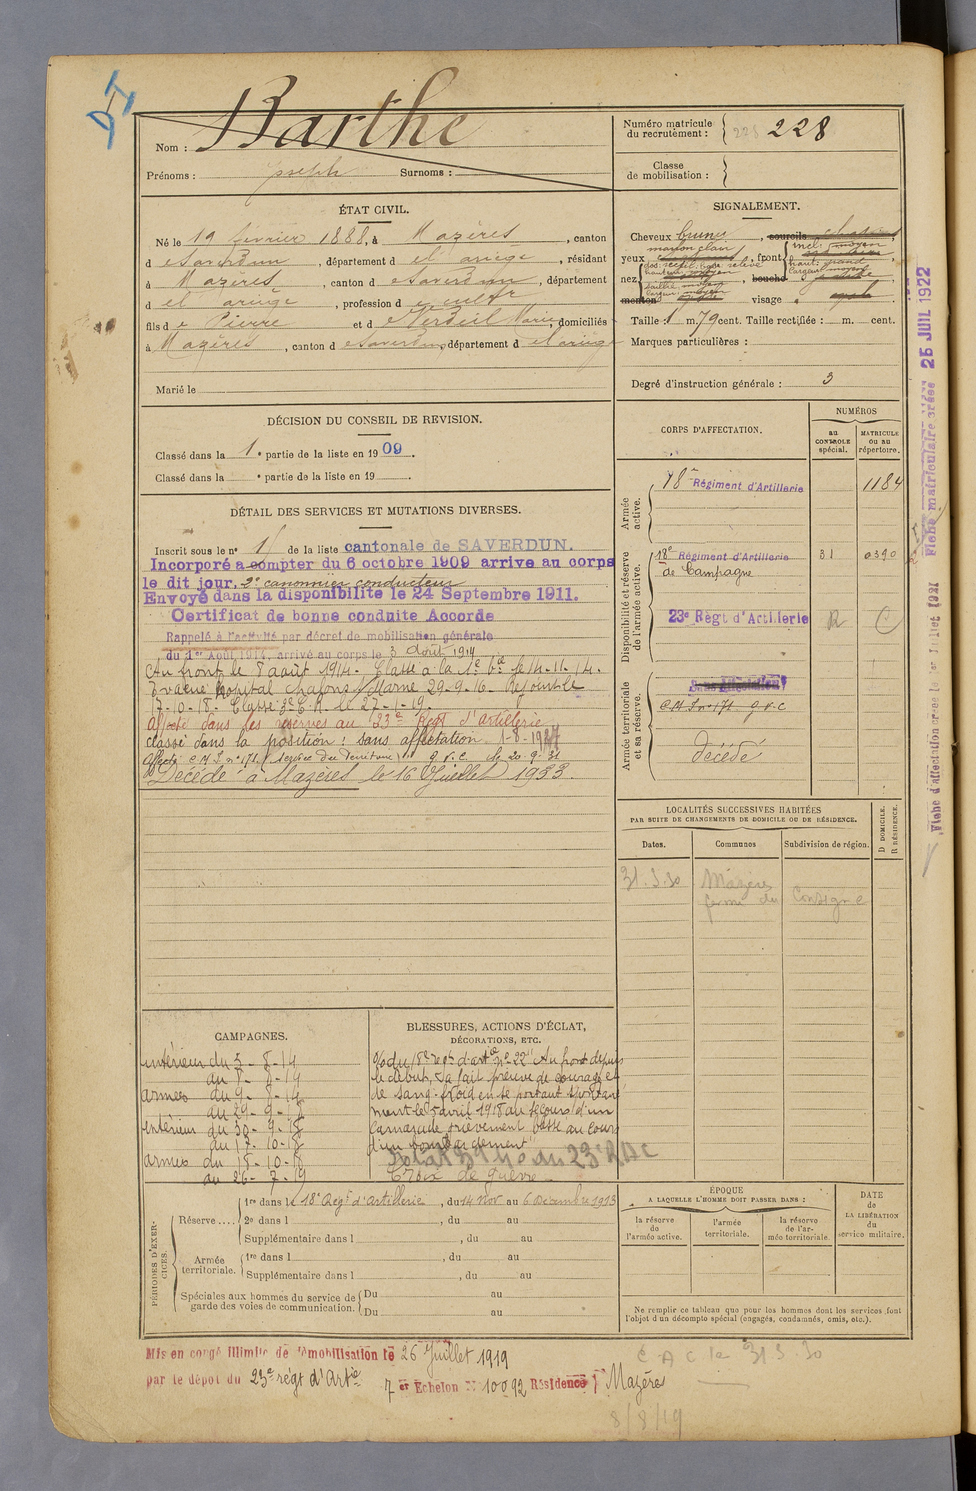 Nom : Barthe
Prénoms : Joseph Surnoms :
Numéro matricule
du recrutement : 228 228
Classe
de mobilisation :
ÉTAT CIVIL.
Né le 19 février 1888, à Mazères, canton
d e Saverdun, département d el ariège, résidant
à Mazères, canton d e Saverdun, département
d el ariège, profession d e cultr
fils d e Pierre et d e Verdeil Marie, domiciliés
à Mazères, canton d e Saverdun, département d el ariège
Marié le
SIGNALEMENT.
Cheveux bruns, sourcils
yeux marron clair, front incl: moyen
haut: grand
largeur moyen
nez dos: rectil. base relevé
hauteur moyen
saillie moyen
largeur moyen
bouche
menton visage
Taille 1 m. 79 cent. Taille rectifiée : m. cent.
Marques particulières :
Degré d'instruction générale : 3
DÉCISION DU CONSEIL DE REVISION.
Classé dans la 1e partie de la liste en 1909.
Classé dans la e partie de la liste en 19 .
DÉTAIL DES SERVICES ET MUTATIONS DIVERSES.
Inscrit sous le no 15 de la liste cantonale de SAVERDUN.
Incorporé à compter du 6 octobre 1909 arrive au corps
le dit jour, 2e canonnier conducteur
Envoyé dans la disponibilité le 24 Septembre 1911.
Certificat de bonne conduite Accorde
Rappelé à l'activité par décret de mobilisation générale
du 1er Août 1914, arrivé au corps le 3 Août 1914
Au front le 8 août 1914. Classé à la 1e bie le 14-11-14.
Evacué hôpital Chalons s/ Marne 29-9-16. Rejoint le
17-10-18. Classé 3e C.R. le 27-1-19.
Affecté dans les réserves au 23e Regt d'artillerie
classé dans la position : sans affectation 1-8-1927
Affecté C.M.I. no 171 (Service du Territoire) G.V.C. le 20-9-31
Décédé à Mazères le 16 Juillet 1933.
CORPS D'AFFECTATION.
NUMÉROS
au
CONTROLE
spécial.
MATRICULE
ou au
répertoire.
Armée
active.
18e Régiment d'Artillerie 1184
Disponibilité et réserve
de l'armée active.
18e Régiment d'Artillerie 31 0390
de Campagne
23e Régt d'Artillerie R C
Armée territoriale
et sa réserve.
Sans Affectation
C.M.I no 171 G.V.C
Décédé
LOCALITÉS SUCCESSIVES HABITÉES
PAR SUITE DE CHANGEMENTS DE DOMICILE OU DE RÉSIDENCE.
Dates. Communes Subdivision de région. D DOMICILE. R RÉSIDENCE.
31.3.30 Mazères
ferme du Consigne
CAMPAGNES.
intérieur du 3-8-14
au 8-8-14
armées du 9-8-14
au 29-9-18
intérieur du 30-9-18
au 17-10-18
armées du 18-10-18
au 26-7-19
BLESSURES, ACTIONS D'ÉCLAT,
DÉCORATIONS, ETC.
O/ du 18e regt d'artie no 22 "Au front depuis
le début, a fait preuve de courage et
de sang-froid en se portant spontané
ment le 5 avril 1918 au secours d'un
camarade grièvement blessé au cours
d'un bombardement"
du 23e RAC
Croix de guerre
PÉRIODES D'EXERCICES.
Réserve....
1re dans le 18e Regt d'artillerie, du 14 nov au 6 Decembre 1913
2e dans l , du au
Supplémentaire dans l , du au
Armée
territoriale.
1re dans l , du au
Supplémentaire dans l , du au
Spéciales aux hommes du service de
garde des voies de communication.
Du au
Du au
ÉPOQUE
A LAQUELLE L'HOMME DOIT PASSER DANS :
la réserve
de
l'armée active.
l'armée
territoriale.
la réserve
de l'ar-
mée territoriale.
DATE
de
LA LIBÉRATION
du
service militaire.
Ne remplir ce tableau que pour les hommes dont les services font
l'objet d'un décompte spécial (engagés, condamnés, omis, etc.).
Mis en congé illimité de démobilisation le 26 Juillet 1919
par le dépôt du 23e régt d'Artie
7 er Echelon No 10092 Résidence Mazères
C A C le 31.3.30
8/8/19
Fiche matriculaire créée 25 JUIL 1922
Fiche d'affectation créée le 1er Juillet 1921